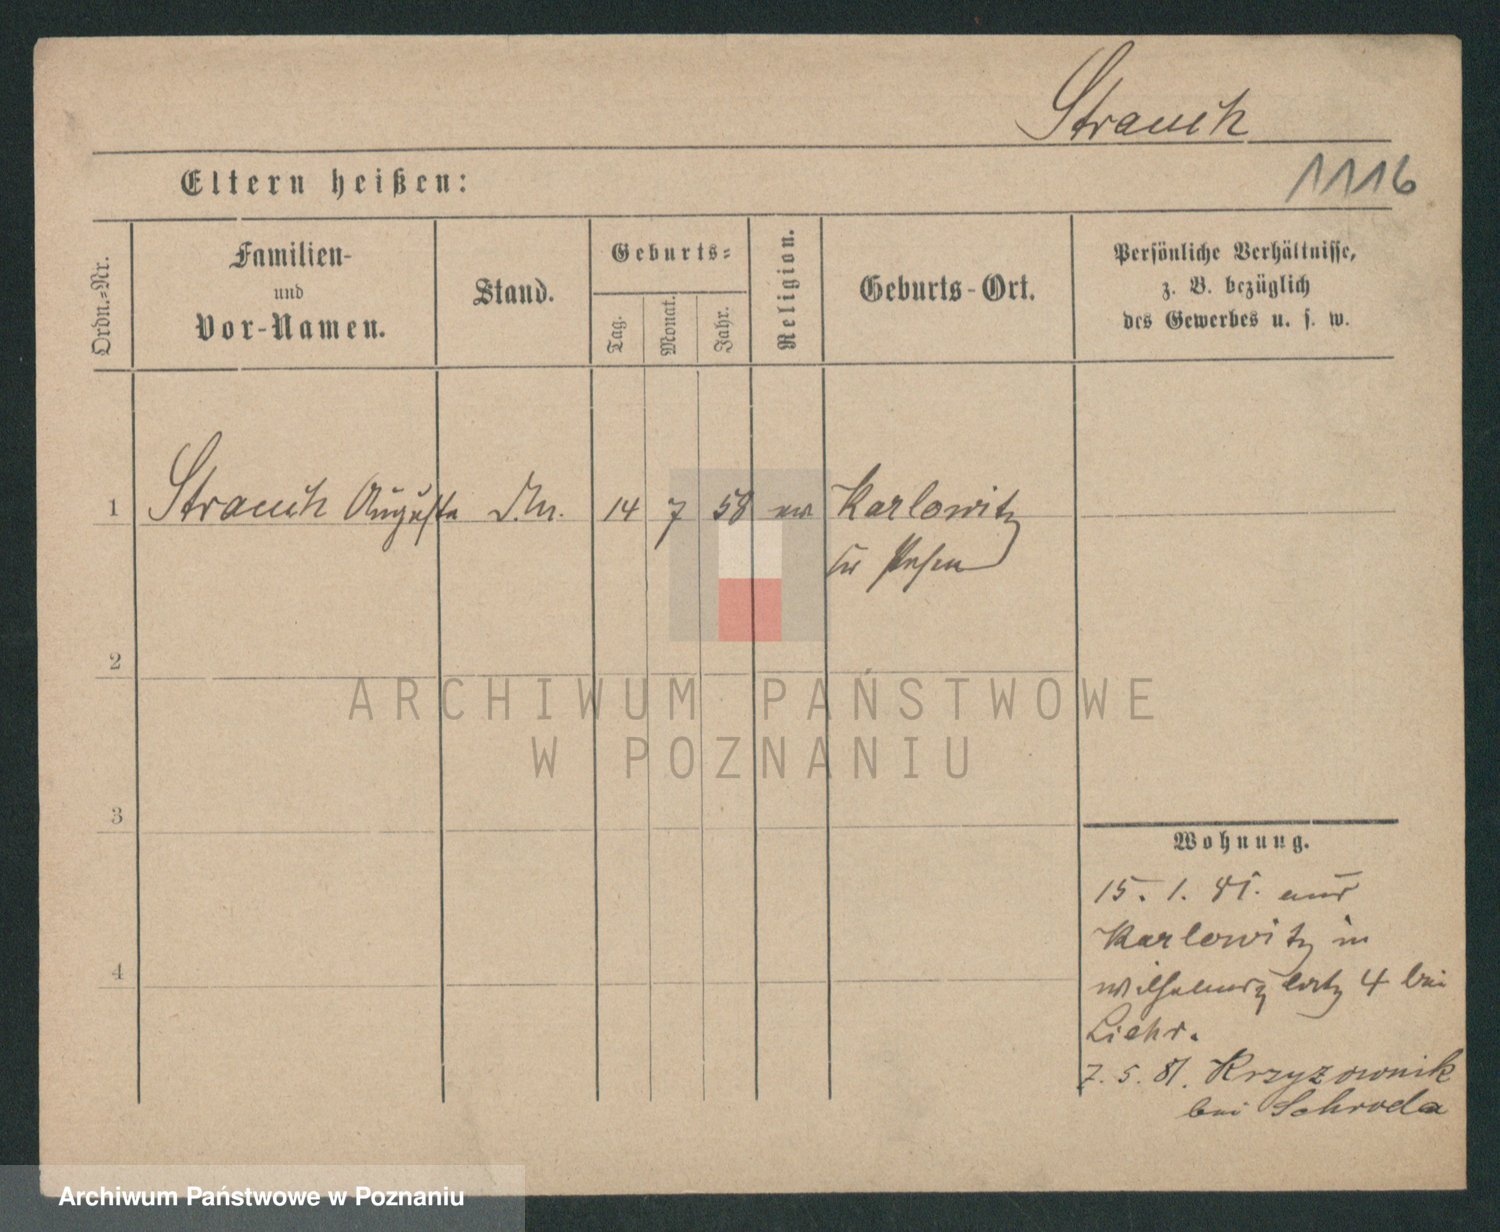 Strauch
1116
Eltern heißen:
Ordn.-Nr.
Familien-
und
Vor-Namen.
Stand.
Geburts-
Tag.
Monat.
Jahr.
Religion.
Geburts-Ort.
Persönliche Verhältnisse,
z. B. bezüglich
des Gewerbes u. s. w.
1 Strauch Auguste 14 7 58 ev Karlowitz
Kr Posen
2
ARCHIWUM PAŃSTWOWE
W POZNANIU
3
Wohnung.
15. 1. 81. aus
Karlowitz in
Wilhelmsplatz 4 bei
Liehr.
7. 5. 81. Krzyzownik
bei Schroda
4
Archiwum Państwowe w Poznaniu